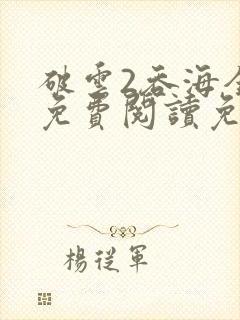 破雲2吞海全
免費閱讀免
楊從軍